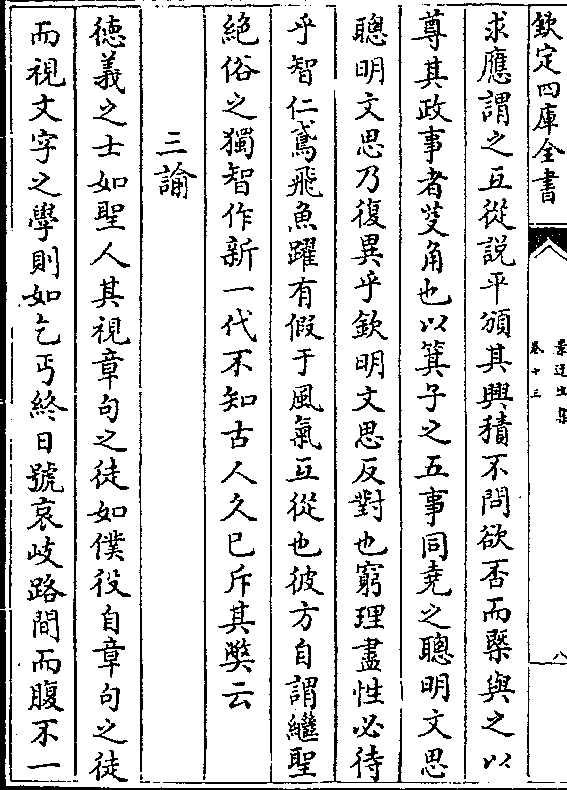 欽定四庫全書
景迂生集
卷十三
八
求應謂之互從說平頒其興積不問欲否而槩與之以
尊其政事者芟角也以箕子之五事同堯之聰明文思
聰明文思乃復異乎欽明文思反對也窮理盡性必待
乎智仁鳶飛魚躍有假于風氣互從也彼方自謂繼聖
絶俗之獨智作新一代不知古人久已斥其獘云
三諭
徳義之士如聖人其視章句之徒如僕役自章句之徒
而視文字之學則如乞丐終日號哀歧路間而腹不一